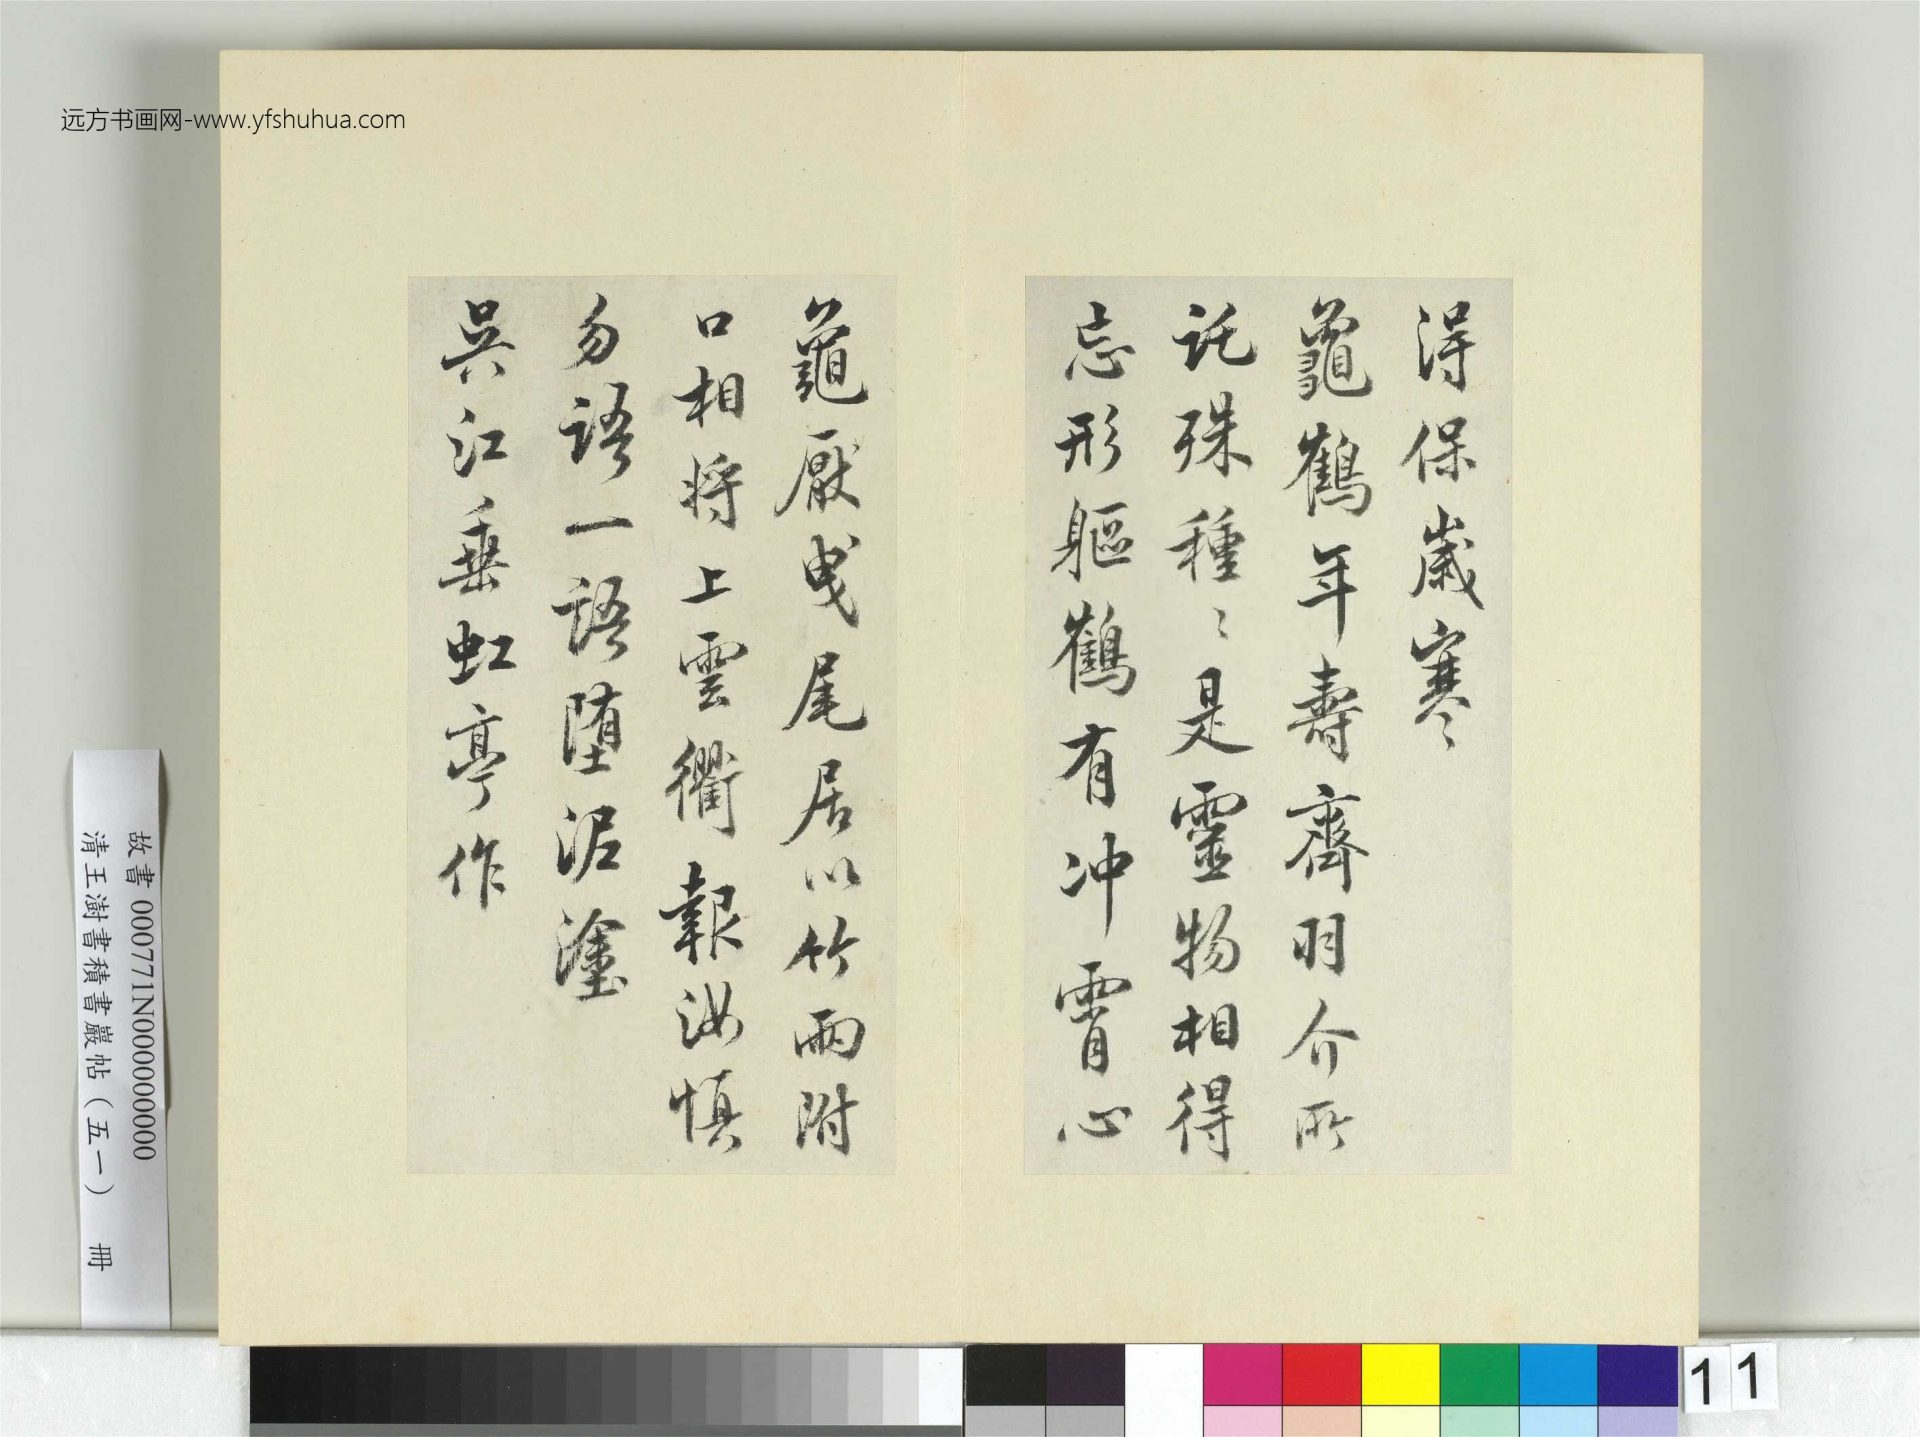 远方书画网-www.yfshuhua.com
得保歲寒
龜鶴年壽齊羽介所
託殊種〻是靈物相得
忘形軀鶴有冲霄心
龜厭曳尾居以竹兩附
口相將上雲衢報汝慎
勿語一語堕泥塗
吳江垂虹亭作
故書 000771N000000000
清王澍書積書巖帖（五一） 冊
11